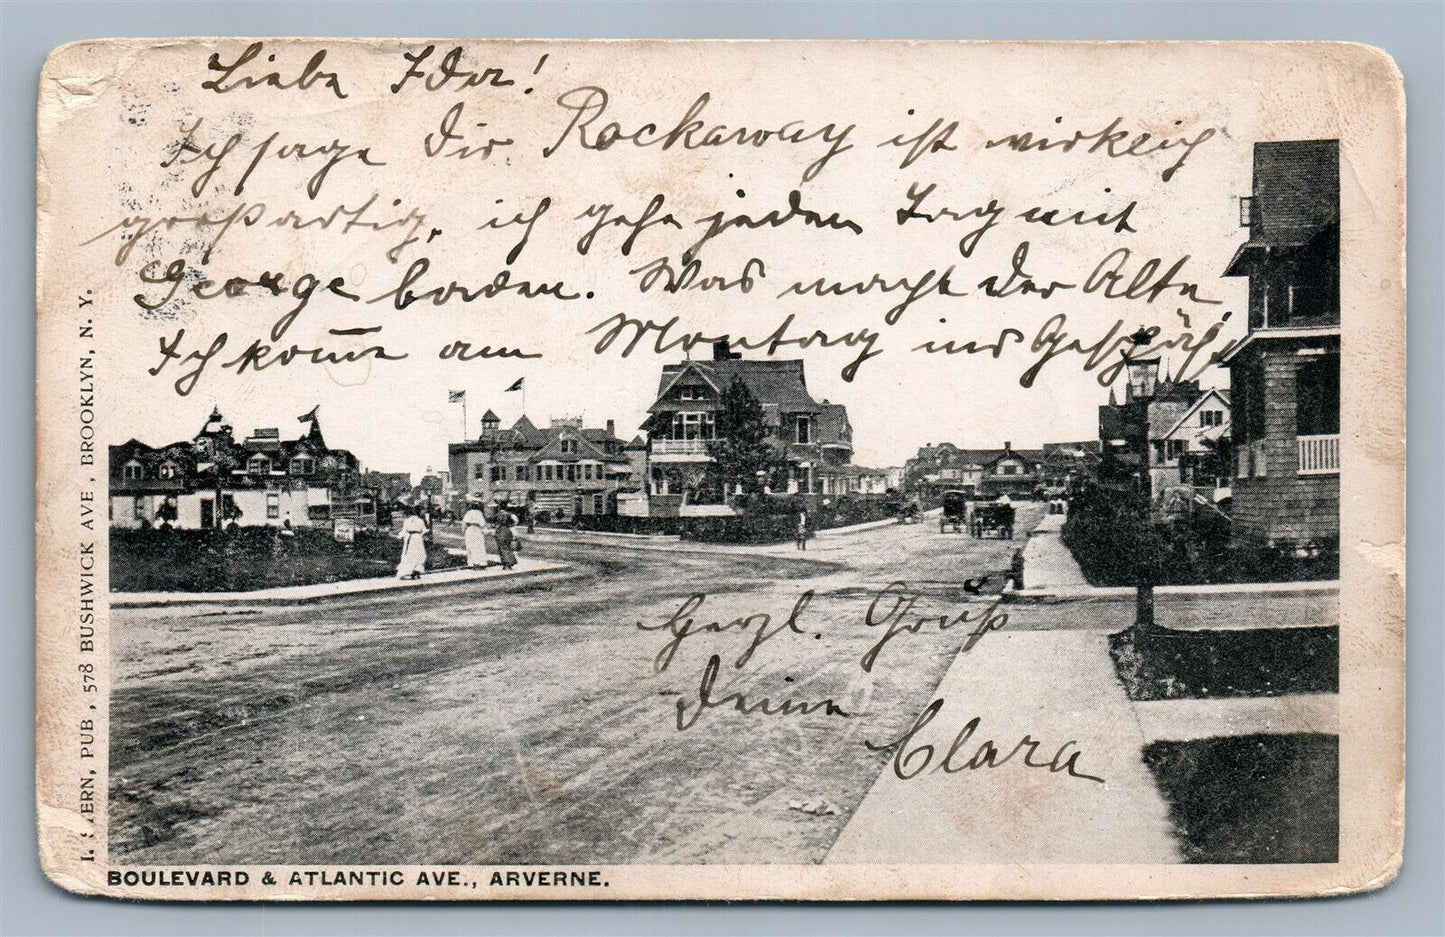 Liebe Ider!
Ich sage Dir Rockaway ist wirklich
großartig, ich gehe jeden Tag mit
George baden. Was macht der Alte
Ich kom̄e am Montag ins Geschäft
Herzl. Gruß
Deine
Clara
BOULEVARD & ATLANTIC AVE., ARVERNE.
PUB, 578 BUSHWICK AVE, BROOKLYN, N. Y.